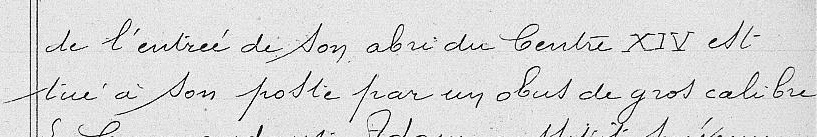 de l'entreé de son abri du Centre XIV est
tué à son poste par un obus de gros calibre